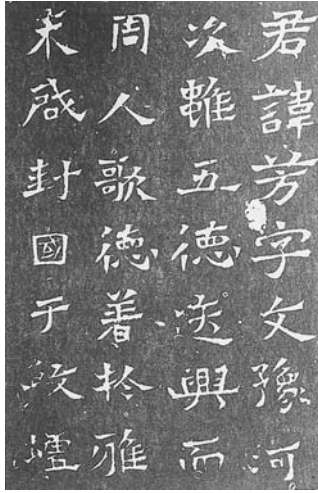 君諱芳字文豫河
次雖五德迭興而
周人歌德著於雅
末咸封國于殷墟